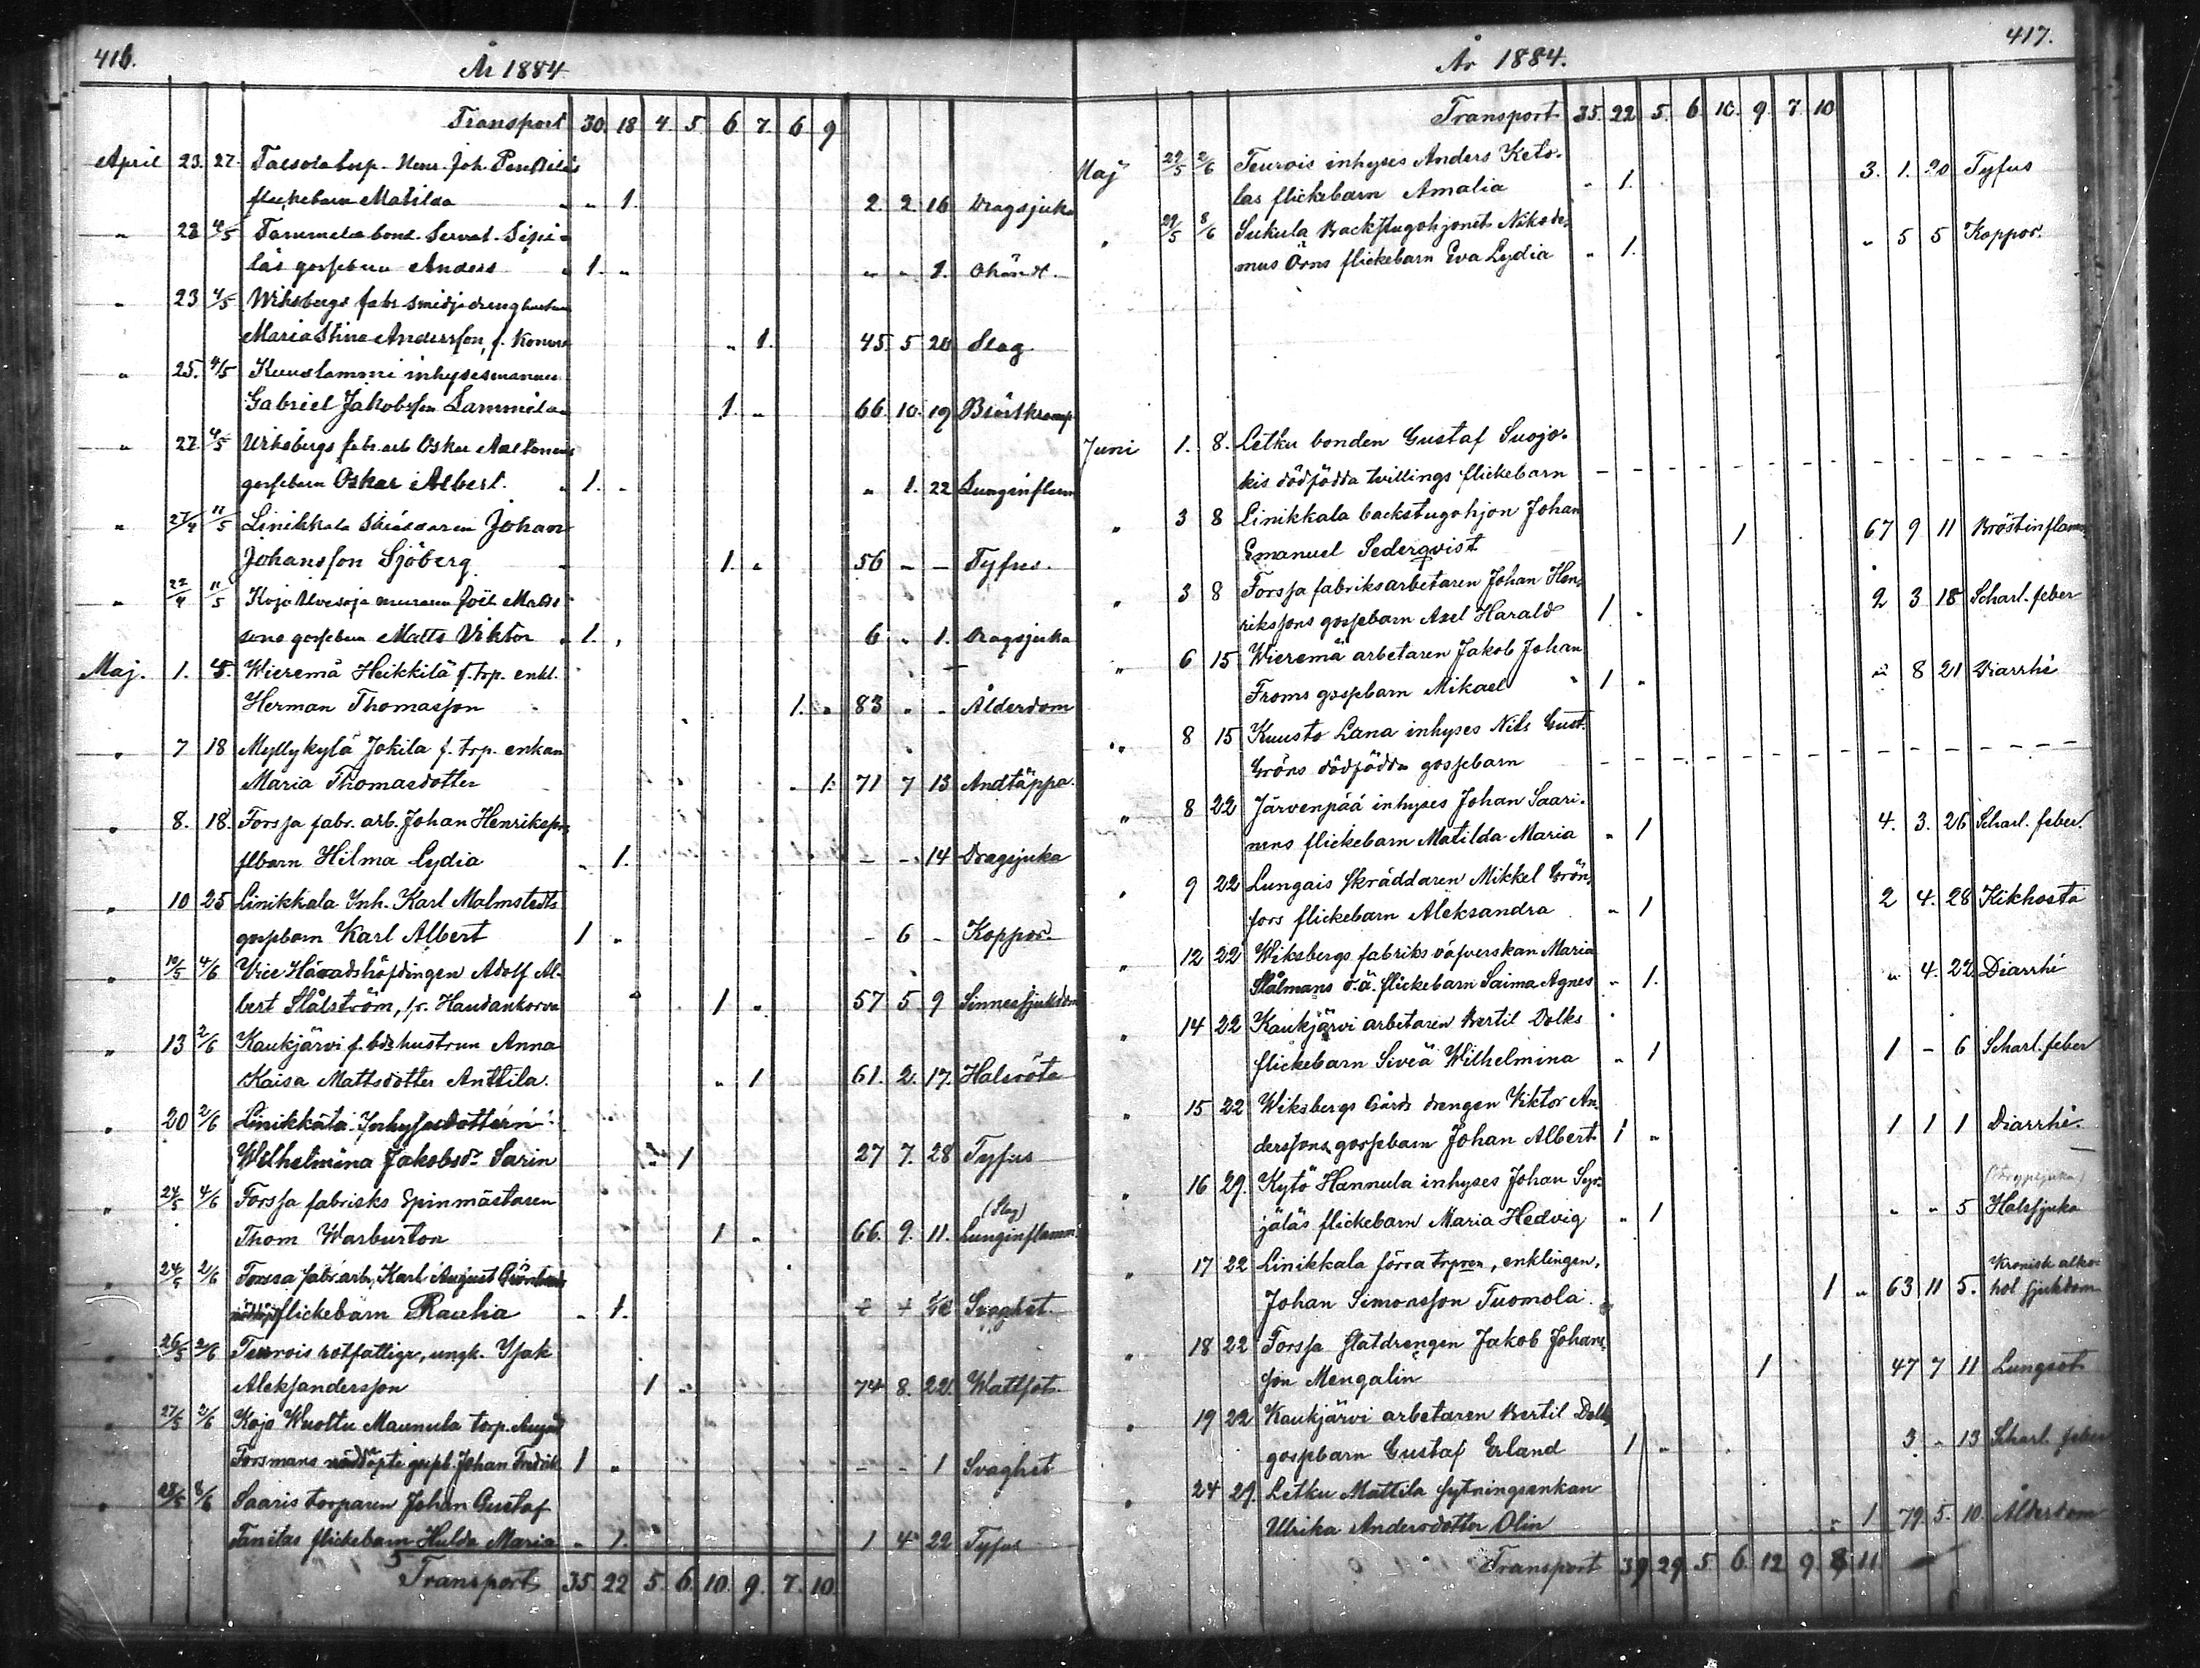 416.
År 1884
Transport 30. 18 4. 5. 6. 7. 6. 9
April 23. 27. Talsola torp. Henr. Joh.
flickebarn Matilda " 1. 2. 2. 16 Dragsjuka
" 23 4/5 Tammela bond. Servat. Sipi-
läs gossebarn Anders 1. " " " 1. Okänd.
" 23 4/5 Wiksbergs fabr. smidjedrenghustrun
Maria Stina Andersson, f. " 1. 45. 5 20 Slag
" 25. 4/5 Kuuslammi inhysesmannen
Gabriel Jakobsson Lammila 1. " 66. 10. 19 Bröstkramp
" 27. 4/5 Wiksbergs fabr. arb. Oskar Aaltonens
gossebarn Oskar Albert. 1. " " 1. 22 Lunginflam
" 27/4 11/5 Linikkala skräddaren Johan
Johansson Sjöberg 1. " 56 - - Tyfus.
" 22/4 11/5 Kojo muraren Joel Matts-
sons gossebarn Matts Viktor 1. " 6 " 1. Dragsjuka
Maj. 1. 4/5. Wieremä Heikkilä f. trp. enkl.
Herman Thomasson 1. " 83 " - Ålderdom
" 7 18 Myllykylä Jokila f. trp. enkan
Maria Thomasdotter " 1. 71 7 13 Andtäppa.
" 8. 18. Forssa fabr. arb. Johan Henrikssons
flbarn Hilma Lydia " 1. - - 14 Dragsjuka
" 10 25 Linikkala Inh. Karl Malmstedts
gossebarn Karl Albert 1 " - 6 - Koppor.
" 10/5 4/6 Vice Häradshöfdingen Adolf Al-
bert Stålström, fr. Haudankorva 1 " 57 5. 9 Sinnessjukdom
" 13 2/6 Kaukjärvi f. bds hustrun Anna
Kaisa Mattsdotter Anttila. " 1 61. 2. 17. Halsröta
" 20 2/6 Linikkala Inhysesdottern
Wilhelmina Jakobsdr Sarin " 1 27 7. 28 Tyfus
" 24/5 4/6 Forssa fabrisks Spinmästaren (Slag)
Thom Warburton 1 " 66. 9. 11. Lunginflamm.
" 24/5 2/6 Forssa fabr. arb. Karl August
flickebarn Rauha " 1. Svaghet
" 26/5 2/6 Teurois rotfattige, ungk. Isak
Aleksandersson 1 " 74 8. 22. Wattsot
" 27/5 2/6 Kojo Wuottu Maunula torp. August
Forsmans nöddöpte gossb. Johan Fredrik 1 " - - 1 Svaghet
" 28/5 8/6 Saaris torparen Johan Gustaf
Tanilas flickebarn Hulda Maria " 1. 1 4 22 Tyfus
Transport 35. 22 5. 6. 10. 9. 7. 10.
417.
År 1884.
Transport 35. 22 5. 6. 10. 9. 7. 10
Maj 29/5 2/6 Teurois inhyses Anders Keto-
las flickebarn Amalia " 1. 3. 1. 20 Tyfus
" 29/5 8/6 Sukula Backstugohjonet Nikode-
mus Örns flickebarn Eva Lydia " 1. " 5 5 Koppor.
Juni 1. 8. Letku bonden Gustaf Suojo-
kis dödfödda tvillings flickebarn - - - - - - - - - - - -
" 3 8 Linikkala backstugohjon Johan
Emanuel Sederqvist 1 67 9 11 Bröstinflamm
" 3 8 Forssa fabriksarbetaren Johan Hen-
rikssons gossebarn Axel Harald 1 " 2 3 18 Scharl. feber
" 6 15 Wieremä arbetaren Jakob Johan
Froms gossebarn Mikael 1 " " 8 21 Diarrhé
" 8 15 Kuusto Lana inhyses Nils Gust.
Gröns dödfödda gossebarn - - - - - - - - - - - -
" 8 22 Järvenpää inhyses Johan Saari-
nens flickebarn Matilda Maria " 1 4. 3. 26 Scharl. feber.
" 9 22 Lungais skräddaren Mikkel Grön-
fors flickebarn Aleksandra " 1 2 4. 28 Kikhosta
" 12 22 Wiksbergs fabriks väfverskan Maria
Stålmans o. ä. flickebarn Saima Agnes " 1. " 4. 22 Diarrhé
" 14 22 Kaukjärvi arbetaren Bertil Dolks
flickebarn Siveä Wilhelmina " 1 1 - 6 Scharl. feber
" 15 22 Wiksbergs Gårds drengen Viktor An-
derssons gossebarn Johan Albert 1 " 1 1 1 Diarrhé.
" 16 29. Kytö Hannula inhyses Johan Syr-
jäläs flickebarn Maria Hedvig " 1 " " 5 Halssjuka
" 17 22 Linikkala förra trpren, enklingen, Kronisk alko-
Johan Simonsson Tuomola. 1 " 63 11 5. hol sjukdom
" 18 22 Forssa statdrengen Jakob Johans-
son Mengalin 1 47 7 11 Lungsot
" 19 22 Kaukjärvi arbetaren Bertil Dolks
gossbarn Gustaf Erland 1 " 3 " 13 Scharl. feber
" 24 29. Letku Mattila sytningsenkan
Ulrika Andersdotter Olin " 1 79 5. 10. Ålderdom
Transport 39. 29. 5. 6. 12 9 8 11.